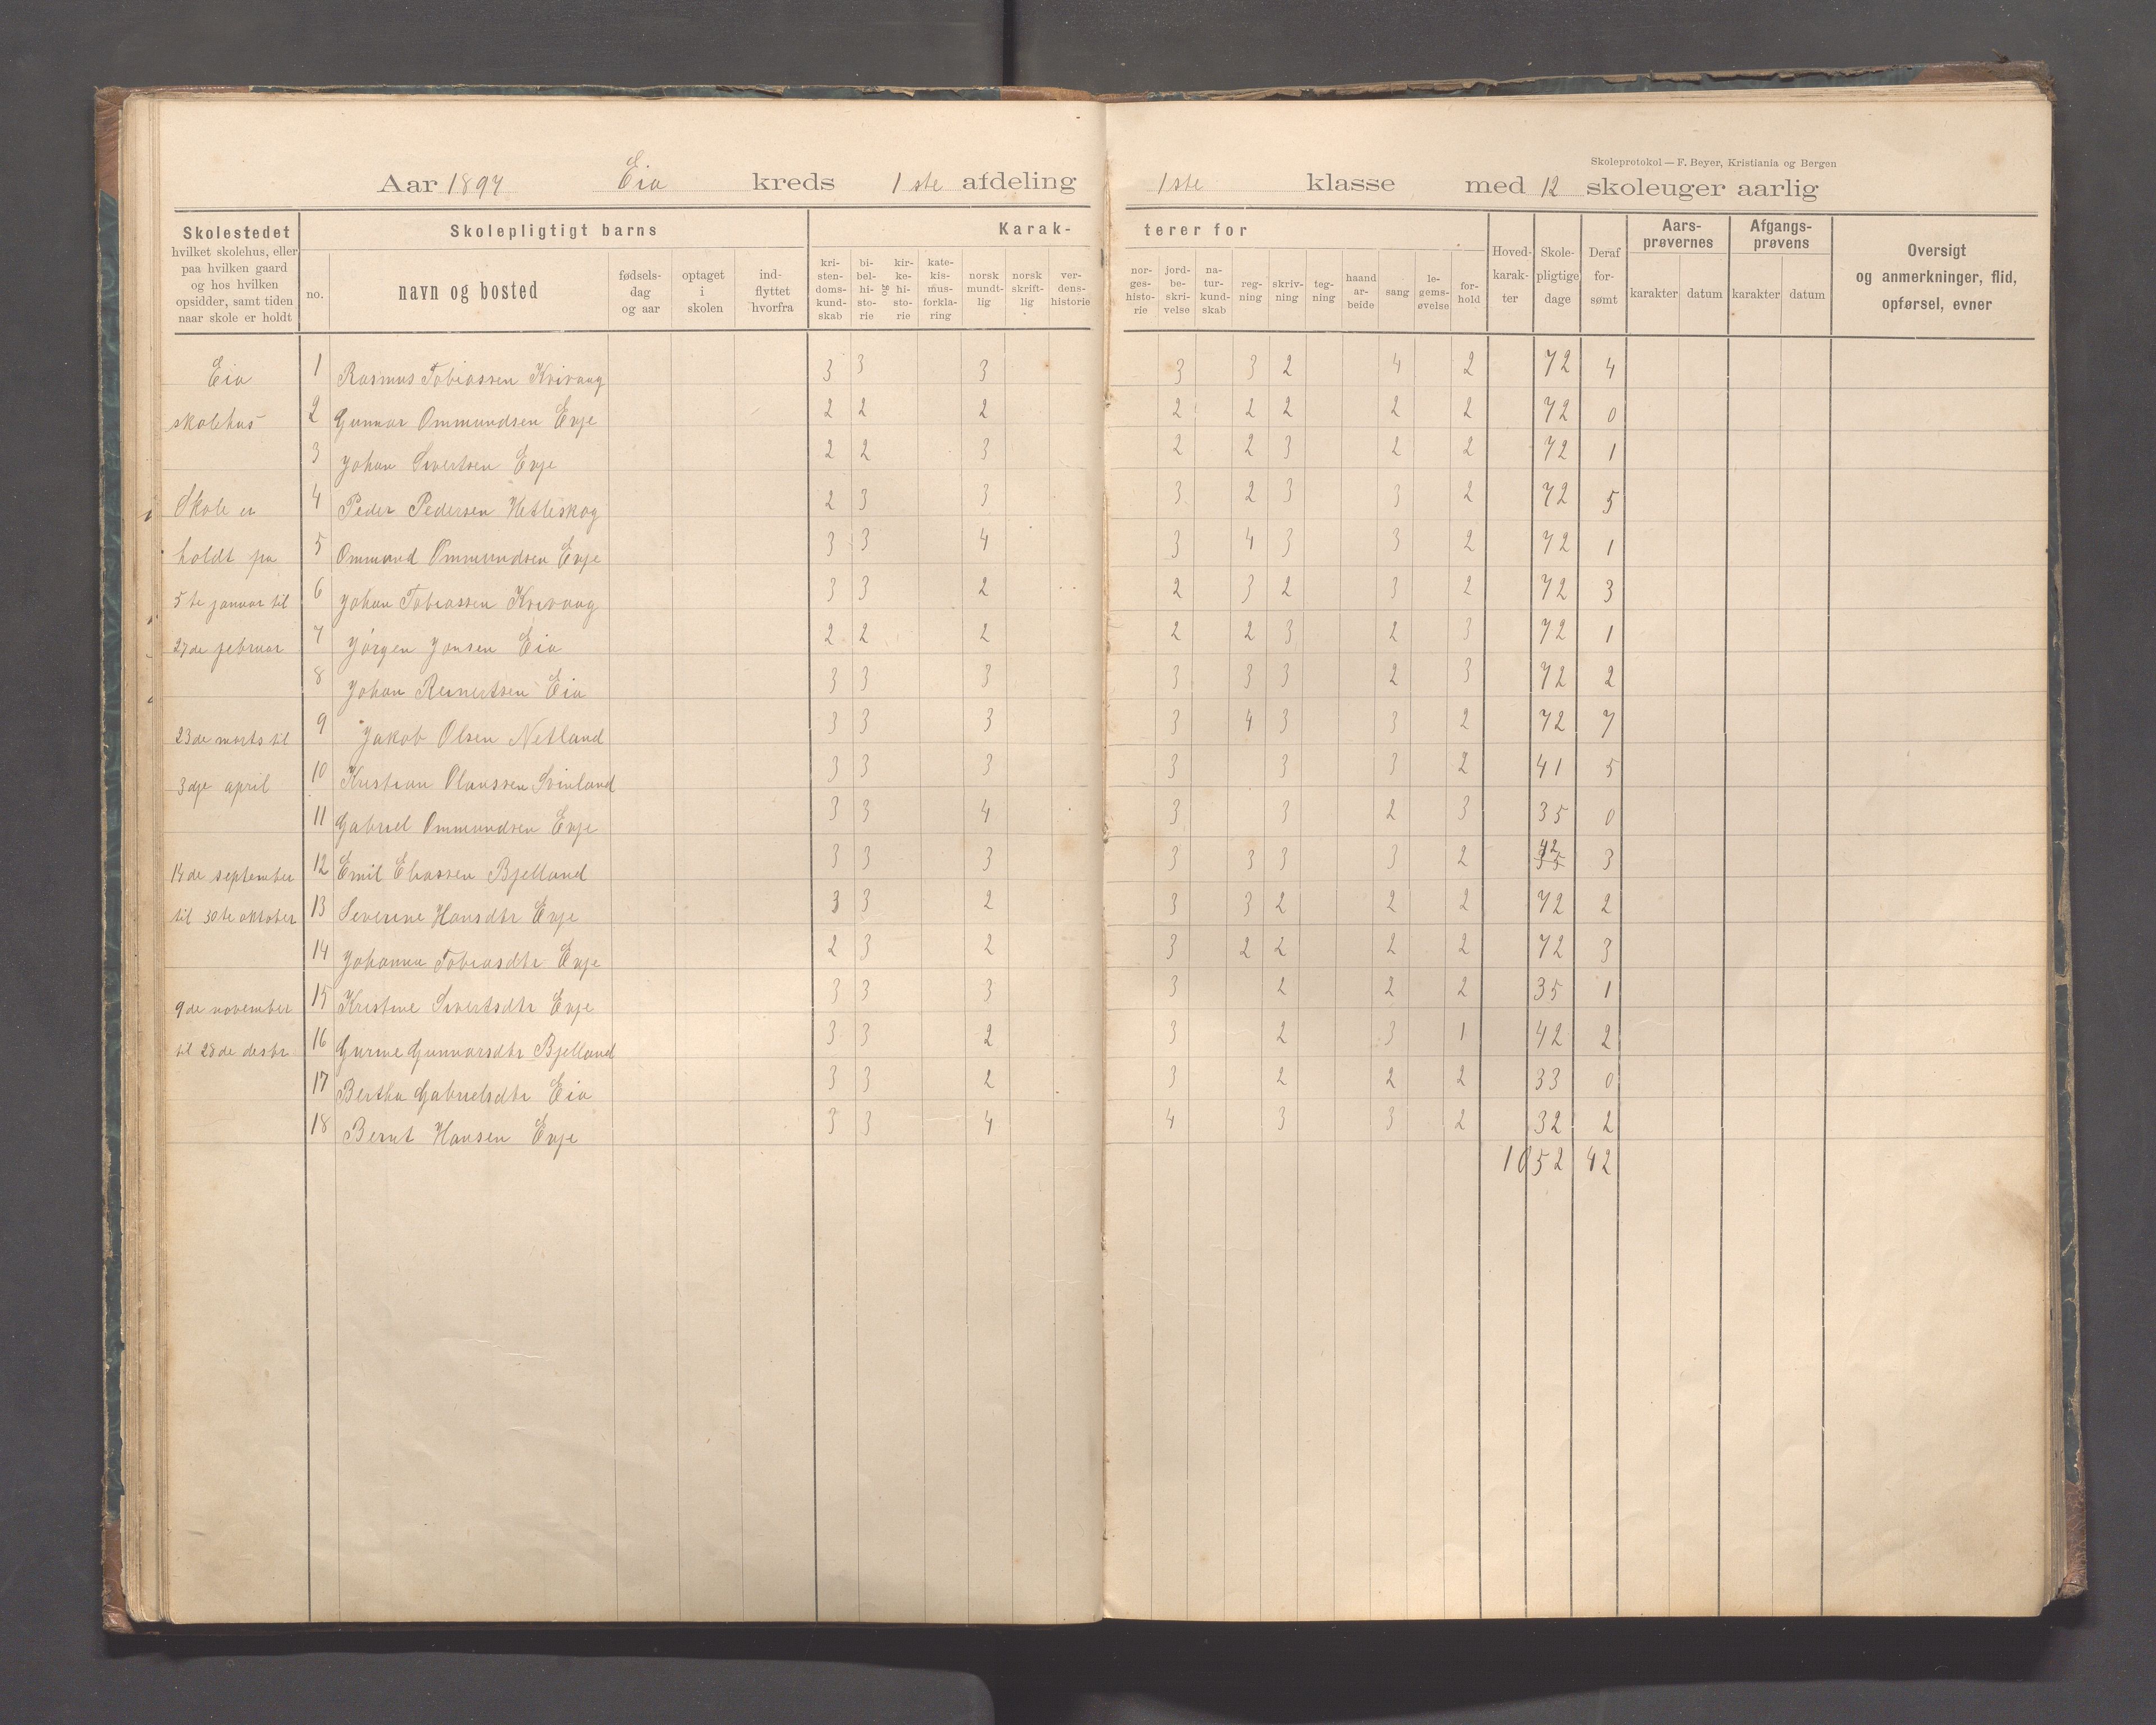 Skoleprotokol — F. Beyer, Kristiania og Bergen
Aar 1897 Eia kreds 1ste afdeling 1ste klasse med 12 skoleuger aarlig
Skolestedet hvilket skolehus, eller paa hvilken gaard og hos hvilken opsidder, samt tiden naar skole er holdt
Skolepligtigt barns
no. navn og bosted fødsels-dag og aar optaget i skolen ind-flyttet hvorfra
Karak- terer for
kri-sten-doms-kund-skab bi-bel-hi-sto-rie og kir-ke-hi-sto-rie kate-kis-mus-forkla-ring norsk mundt-lig norsk skrift-lig ver-dens-historie nor-ges-histo-rie jord-be-skri-velse na-tur-kund-skab reg-ning skriv-ning teg-ning haand ar-beide sang le-gems-øvelse for-hold
Hoved-karak-ter Skole-pligtige dage Deraf for-sømt
Aars-prøvernes karakter datum
Afgangs-prøvens karakter datum
Oversigt og anmerkninger, flid, opførsel, evner
Eia 1 Rasmus Tobiassen Kvivaag 3 3 3 3 3 2 4 2 72 4
skolehus 2 Gunnar Ommundsen Evje 2 2 2 2 2 2 2 2 72 0
3 Johan Sivertsen Evje 2 2 3 2 2 3 2 2 72 1
Skole er 4 Peder Pedersen Hetleskog 2 3 3 3 2 3 3 2 72 5
holdt fra 5 Ommund Ommundsen Evje 3 3 4 3 4 3 3 2 72 1
5te januar til 6 Johan Tobiassen Kvivaag 3 3 2 2 3 2 3 2 72 3
27de februar 7 Jørgen Jonsen Eia 2 2 2 2 2 3 2 3 72 1
8 Johan Reinertsen Eia 3 3 3 3 3 3 2 3 72 2
23de marts til 9 Jakob Olsen Netland 3 3 3 3 4 3 3 2 72 7
3dje april 10 Kristian Olaussen Svinland 3 3 3 3 3 3 2 41 5
11 Gabriel Ommundsen Evje 3 3 4 3 3 2 3 35 0
14de september 12 Emil Eliassen Bjelland 3 3 3 3 3 3 3 2 42 35 3
til 30te oktober 13 Severine Hansdtr Evje 3 3 2 3 3 2 2 2 72 2
14 Johanna Tobiasdtr Evje 2 3 2 3 2 2 2 2 72 3
9de november 15 Kristine Sivertsdtr Evje 3 3 3 3 2 2 2 35 1
til 28de desbr 16 Gurine Gunnarsdtr Bjelland 3 3 2 3 2 3 1 42 2
17 Bertha Gabrielsdtr Eia 3 3 2 3 2 2 2 33 0
18 Bernt Hansen Evje 3 3 4 4 3 3 2 32 2
1052 42